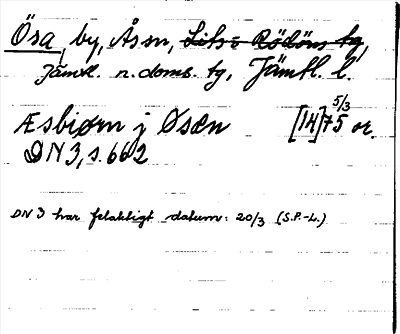 Ösa, by, Åsn, Lits o Rödöns tg,
Jämtl. n. doms. tg, Jämtl. l.
5/3
Æsbiørn j Øsæn [14]75 or.
DN 3, s. 662
DN 3 har felaktigt datum: 20/3 (S.P.-L.)